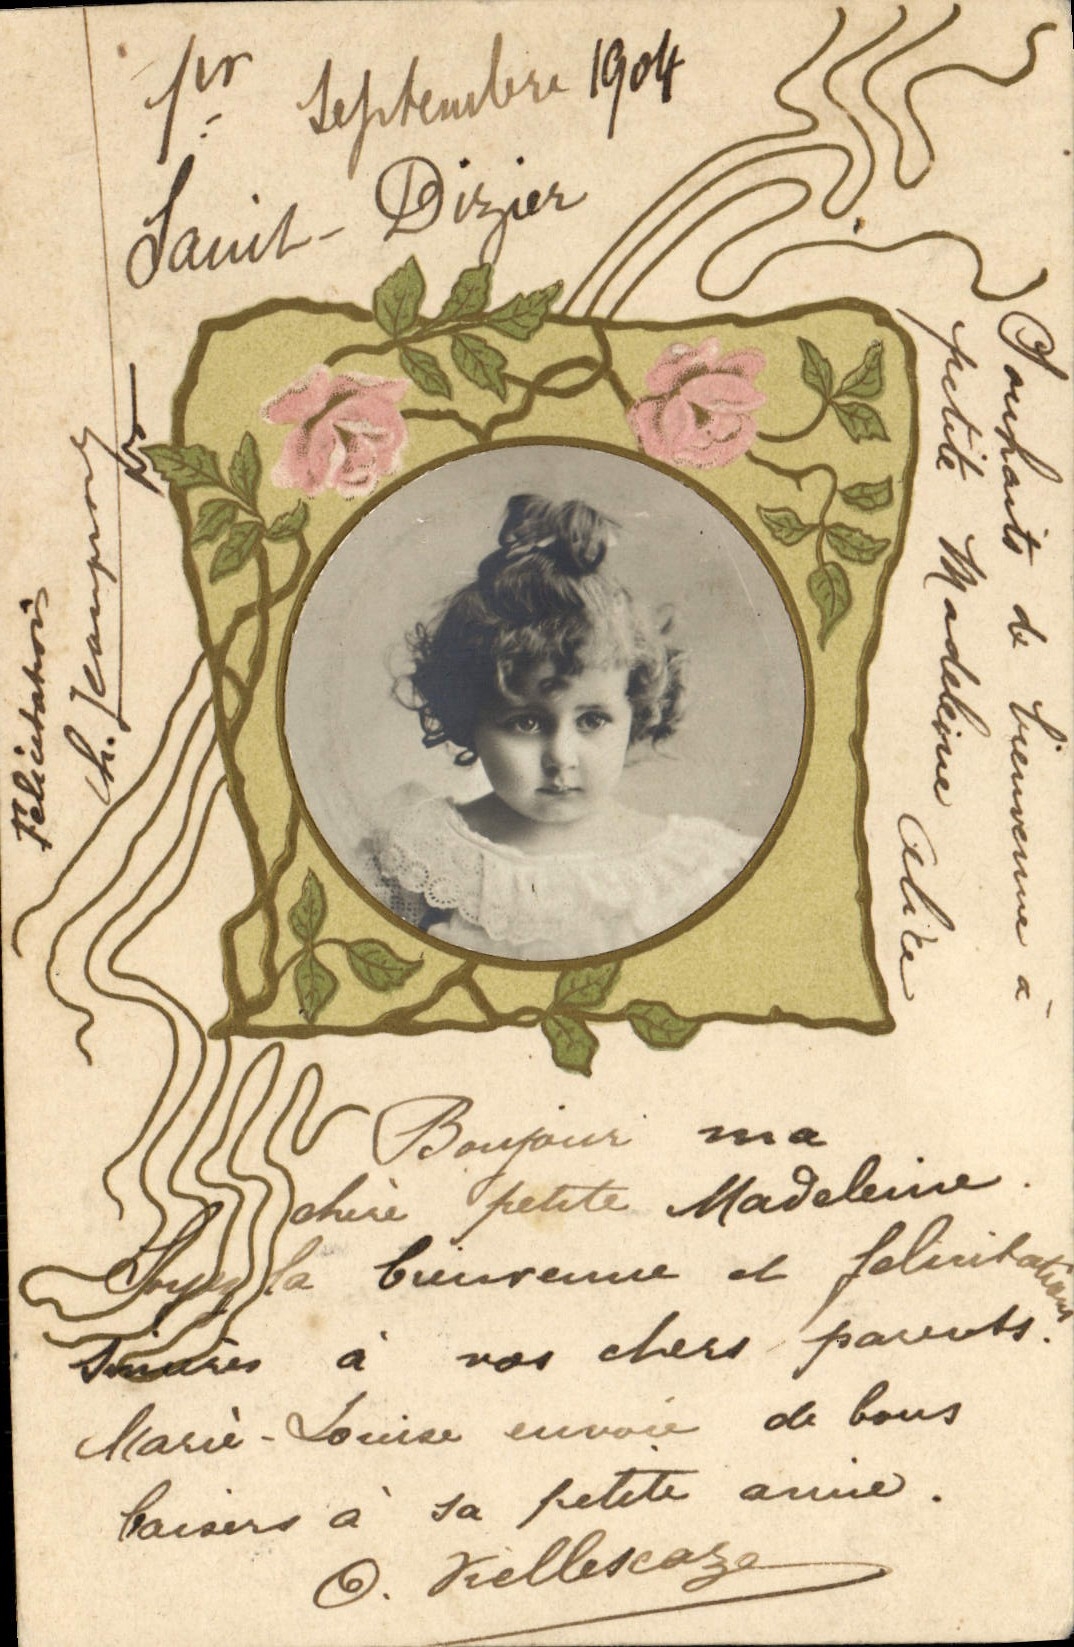 1er Septembre 1904
Saint-Dizier
Souhaits de bienvenue à
petite Madeleine Alice
Félicitations
Ch. Jeanprost
Bonjour ma
chère petite Madeleine.
Soyez la bienvenue et félicitations
sincères à vos chers parents.
Marie-Louise envoie de bons
baisers à sa petite amie.
O. Viellescaze